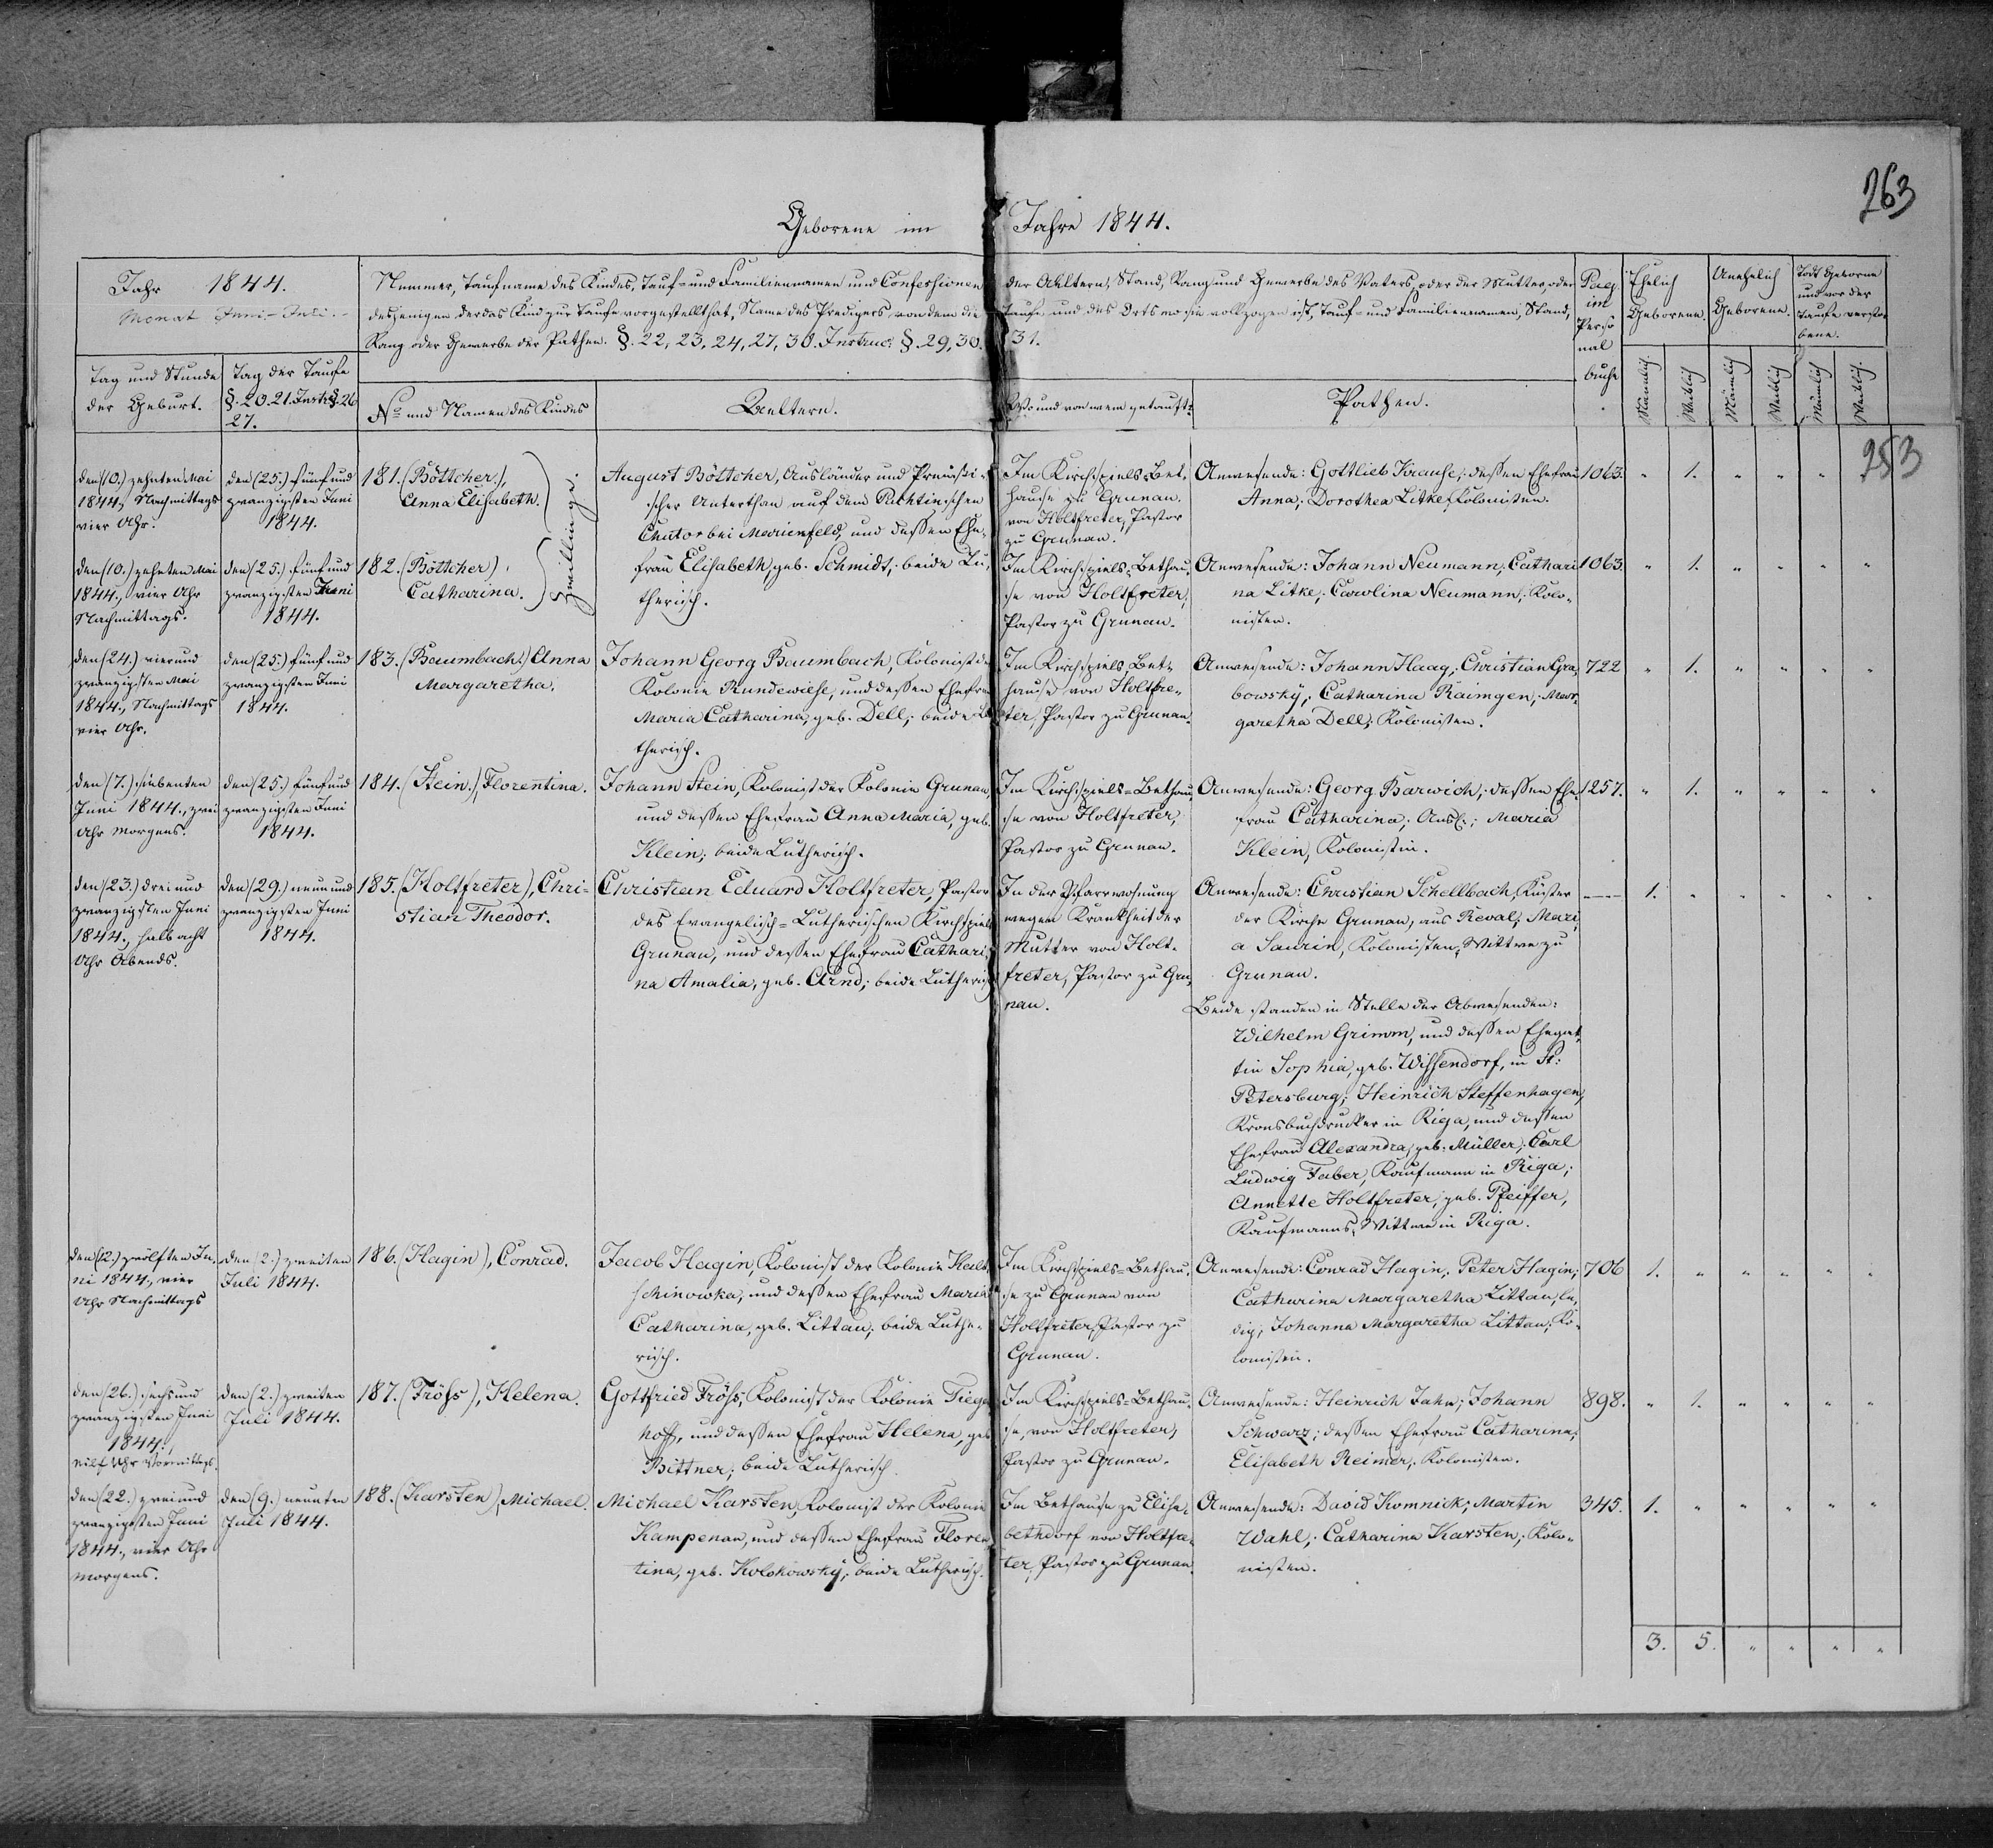 263
Geborene im Jahre 1844.
Jahr 1844.
Monat Juni-Juli.
Nummer, Taufname des Kindes, Tauf- und Familiennamen und Confeshionen der Aeltern, Stand, Rang und Gewerbe des Vaters, oder der Mutter, oder
desjenigen der das Kind zur Taufe vorgestellt hat, Name des Predigers, von dem die Taufe und des Orts wo sie vollzogen ist, Tauf- und Familiennamen, Stand,
Rang oder Gewerbe der Pathen. §. 22, 23, 24, 27, 30. Instruc: §. 29, 30. 31.
Pag.
im
Perso
nal
buche
Ehelich
Geborene.
Unehelich
Geborene.
Todt Geborene
und vor der
Taufe verstor-
bene.
Tag und Stunde
der Geburt.
Tag der Taufe
§. 20. 21. Instr. §. 26
27.
No und Namen des Kindes
Aeltern.
Wo und von wem getauft:
Pathen.
Männlich.
Weiblich
Männlich
Weiblich
Männlich
Weiblich.
253
den (10.) zehnten Mai
1844., Nachmittags
vier Uhr.
den (25.) fünf und
zwanzigsten Juni
1844.
181. (Böttcher.),
Anna Elisabeth.
Zwillinge.
August Böttcher, Ausländer und Preußi-
scher Unterthan auf dem
Chutor bei Marienfeld, und dessen Ehe-
frau Elisabeth, geb. Schmidt, beide Lu-
therisch.
Im Kirchspiels-Bet-
hause zu Grunau.
von Holtfreter, Pastor
zu Grunau.
Anwesende: Gottlieb Krause; dessen Ehefrau
Anna; Dorothea Litke, Kolonisten.
1063. " 1. " " "
den (10.) zehnten Mai
1844., vier Uhr
Nachmittags.
den (25.) fünf und
zwanzigsten Juni
1844.
182. (Böttcher)
Catharina.
Im Kirchspiels-Bethau-
se von Holtfreter,
Pastor zu Grunau.
Anwesende: Johann Neumann; Cathari
na Litke; Carolina Neumann; Kolo-
nisten.
1063. " 1. " " " "
den (24.) vier und
zwanzigsten Mai
1844., Nachmittags
vier Uhr.
den (25.) fünf und
zwanzigsten Juni
1844.
183. (Baumbach.) Anna
Margaretha.
Johann Georg Baumbach, Kolonist der
Kolonie Rundewiese, und dessen Ehefrau
Maria Catharina, geb. Dell; beide Lu
therisch.
Im Kirchspiels-Bet-
hause von Holtfre-
ter, Pastor zu Grunau.
Anwesende: Johann Haag; Christian Gra-
bowsky; Catharina Raimgen; Mar-
garetha Dell; Kolonisten.
722 " 1. " " " "
den (7.) siebenten
Juni 1844., zwei
Uhr Morgens.
den (25.) fünf und
zwanzigsten Juni
1844.
184. (Stein.) Florentina.
Johann Stein, Kolonist der Kolonie Grunau,
und dessen Ehefrau Anna Maria, geb.
Klein; beide Lutherisch.
Im Kirchspiels-Bethau-
se von Holtfreter,
Pastor zu Grunau.
Anwesende: Georg Barwich; dessen Ehe-
frau Catharina; Ausl.; Maria
Klein, Kolonistin.
1257. " 1. " " " "
den (23.) drei und
zwanzigsten Juni
1844., halb acht
Uhr Abends.
den (29.) neun und
zwanzigsten Juni
1844.
185. (Holtfreter), Chri-
stian Theodor.
Christian Eduard Holtfreter, Pastor
des Evangelisch-Lutherischen Kirchspiels
Grunau, und dessen Ehefrau Cathari-
na Amalia, geb. Arnd; beide Lutherisch
In der Pfarrwohnung
wegen Krankheit der
Mutter von Holt-
freter, Pastor zu Gru-
nau.
Anwesende: Christian Schellbach, Küster
der Kirche Grunau, aus Reval; Mari-
a Saurin, Kolonisten-Wittwe zu
Grunau.
Beide standen in Stelle der Abwesenden:
Wilhelm Grimm, und dessen Ehegat-
tin Sophia, geb. Wissendorf, in St:
Petersburg; Heinrich Steffenhagen,
Kronsbuchdrucker in Riga, und dessen
Ehefrau Alexandra, geb. Müller; Carl
Ludwig Faber, Kaufmann in Riga;
Annette Holtfreter, geb. Pfeiffer,
Kaufmanns-Wittwe in Riga.
— 1. " " " " "
den (12.) zwölften Ju-
ni 1844., vier
Uhr Nachmittags
den (2.) zweiten
Juli 1844.
186. (Hagin), Conrad.
Jacob Hagin, Kolonist der Kolonie Kalt-
schinowka, und dessen Ehefrau Maria
Catharina, geb. Littau; beide Luthe-
risch.
Im Kirchspiels-Bethau-
se zu Grunau von
Holtfreter, Pastor zu
Grunau.
Anwesende: Conrad Hagin; Peter Hagin;
Catharina Margaretha Littau, le-
dig; Johanna Margaretha Littau; Ko-
lonisten.
706 1. " " " " "
den (26.) sechs und
zwanzigsten Juni
1844.,
eilf Uhr Vormittags.
den (2.) zweiten
Juli 1844.
187. (Fröhs), Helena.
Gottfried Fröhs, Kolonist der Kolonie Tiegen
hoff, und dessen Ehefrau Helena, geb
Bittner; beide Lutherisch.
Im Kirchspiels-Bethau-
se, von Holtfreter,
Pastor zu Grunau.
Anwesende: Heinrich Jahn; Johann
Schwarz; dessen Ehefrau Catharina;
Elisabeth Reimer; Kolonisten.
898. " 1. " " " "
den (22.) zwei und
zwanzigsten Juni
1844., vier Uhr
Morgens.
den (9.) neunten
Juli 1844.
188. (Karsten), Michael.
Michael Karsten, Kolonist der Kolonie
Kampenau, und dessen Ehefrau Floren-
tina, geb. Kolokowsky; beide Lutherisch.
Im Bethause zu Elisa-
bethdorf von Holtfre-
ter, Pastor zu Grunau.
Anwesende: David Komnick; Martin
Wahl; Catharina Karsten; Kolo-
nisten.
345. 1. " " " " "
3. 5. " " " "